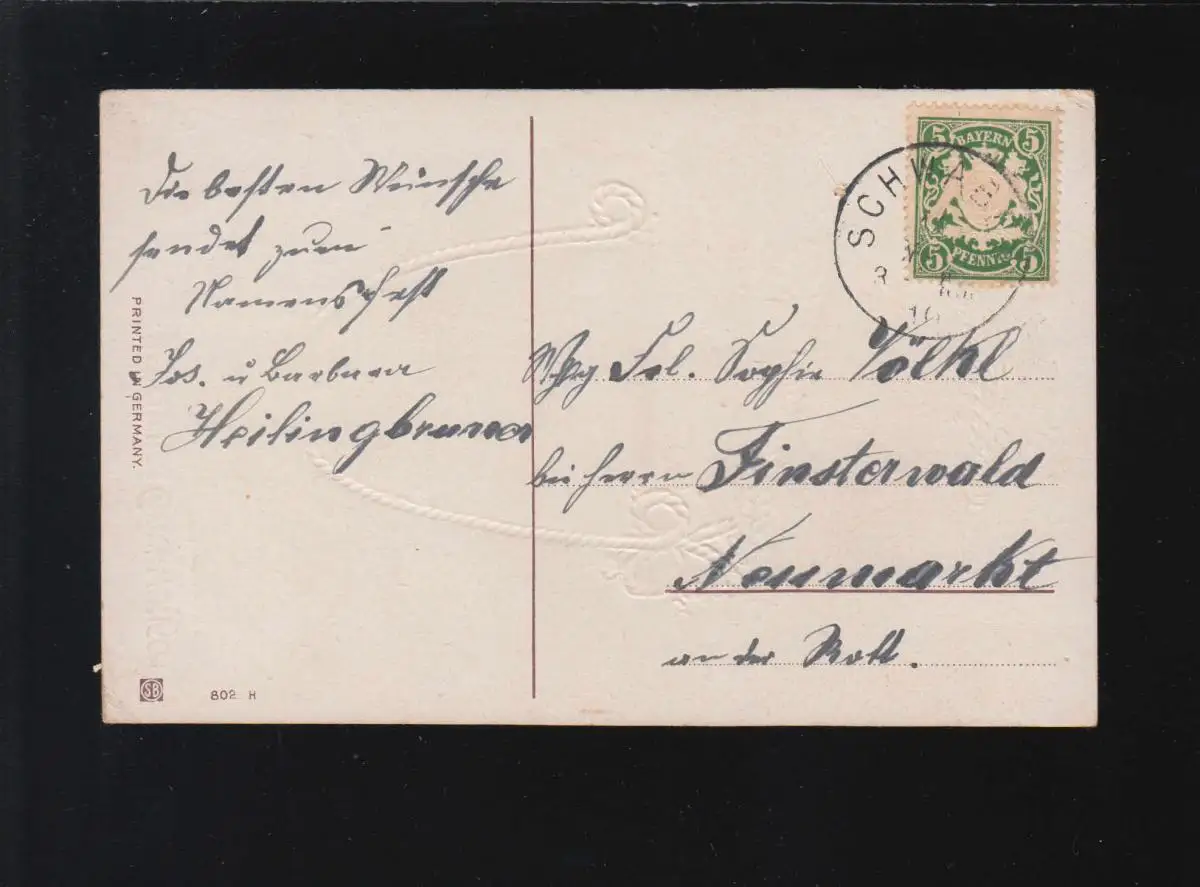 Die besten Wünsche
sendet zum
Namensfest
Jos. u Barbara
Heilingbrunner
PRINTED IN GERMANY.
SB
802 H
5 BAYERN 5
5 PFENNIG 5
SCHWAB
3
10
Frl. Sophie Völkl
bei Herrn Finsterwald
Neumarkt
an der Rott.